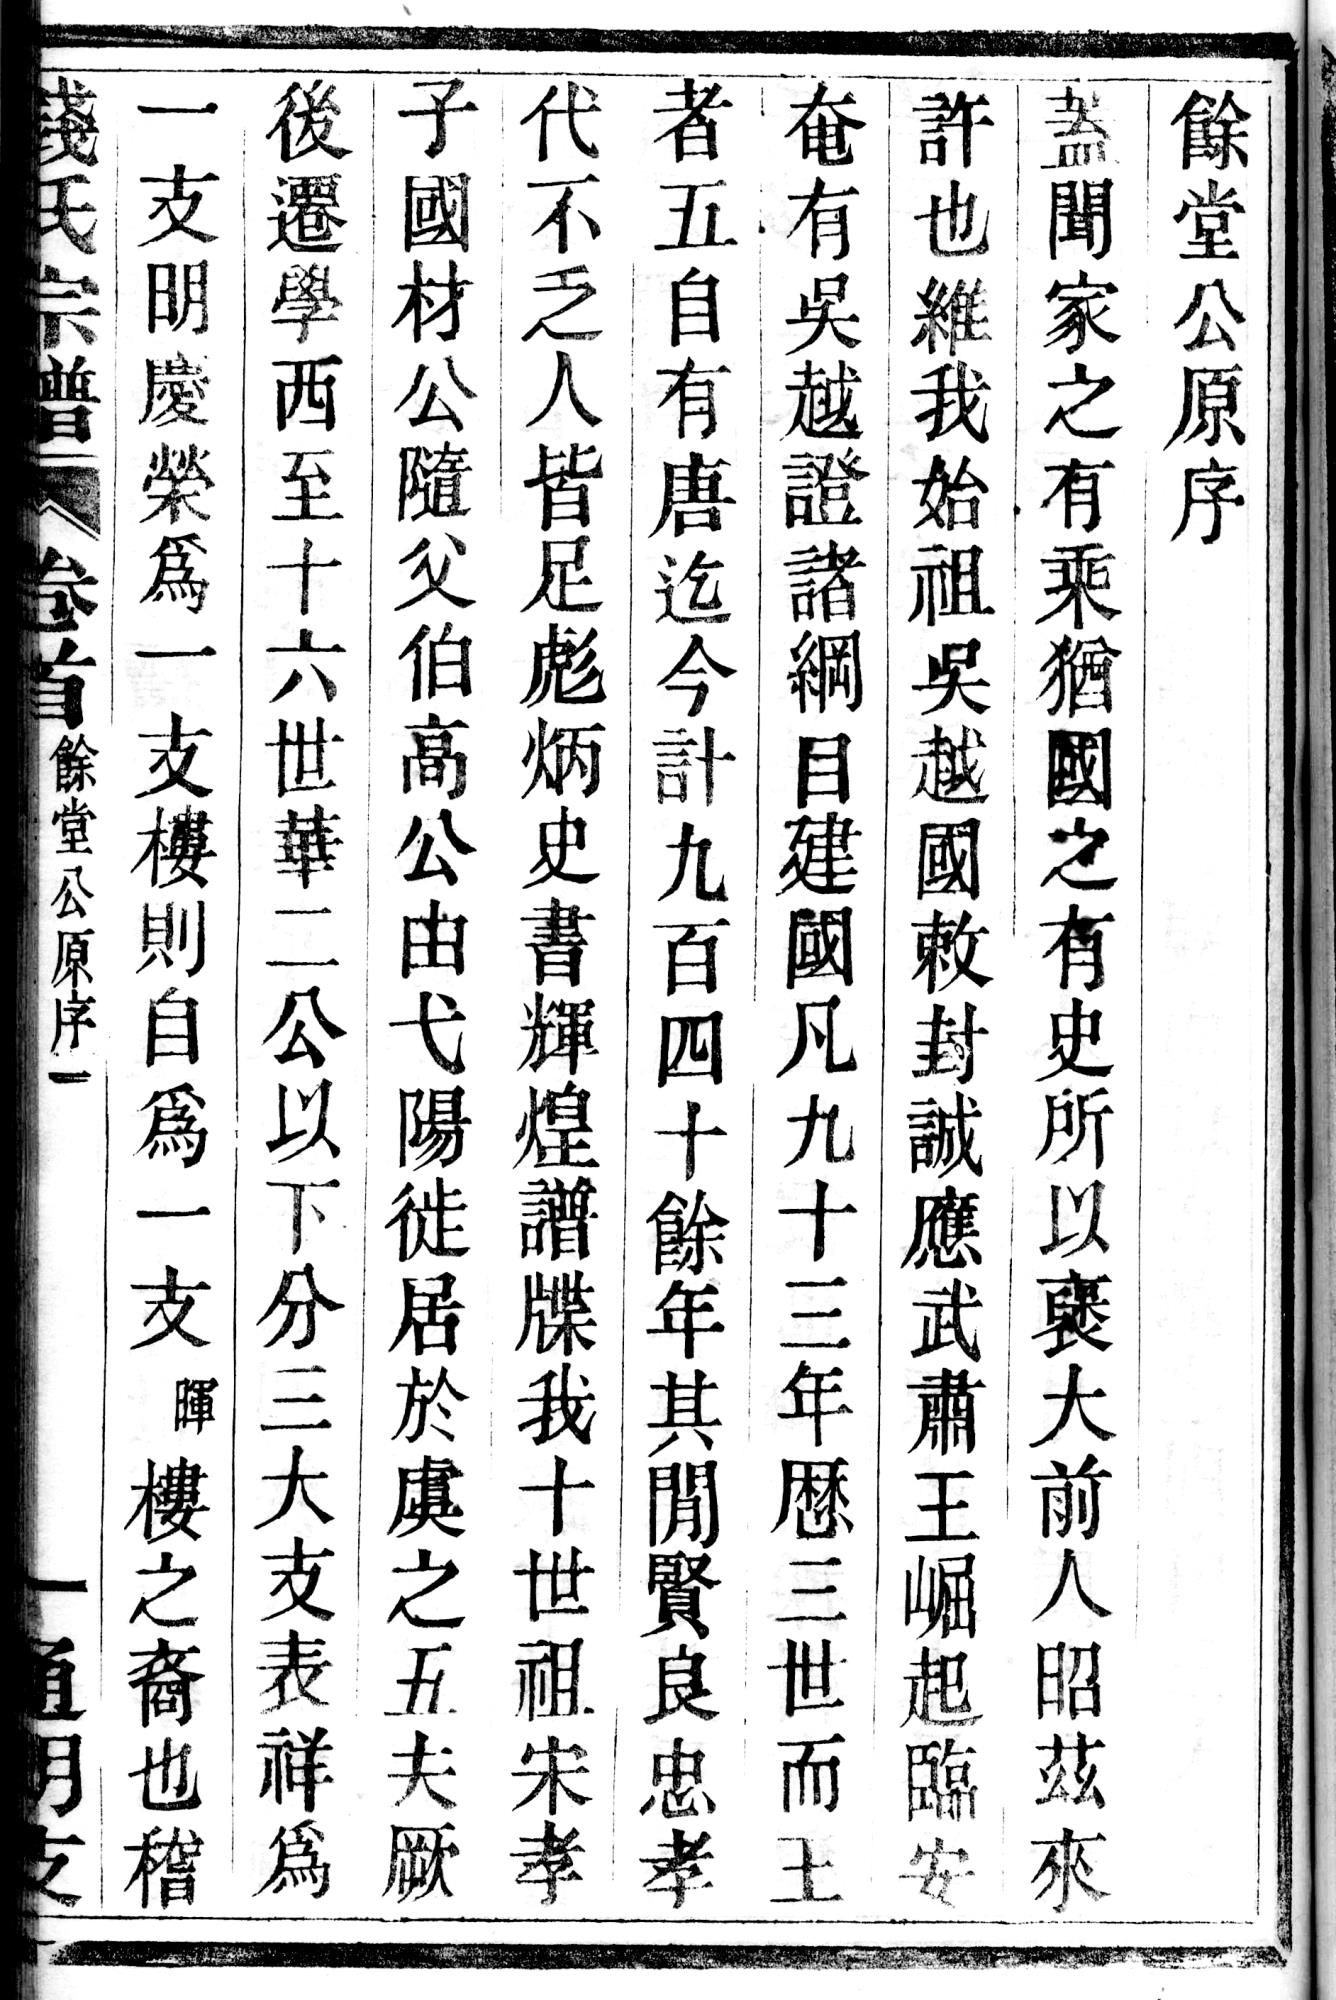 餘堂公原序
蓋聞家之有乘猶國之有史所以襃大前人昭茲來
許也維我始祖吳越國敕封誠應武肅王崛起臨安
奄有吳越證諸綱目建國凡九十三年歷三世而王
者五自有唐迄今計九百四十餘年其閒賢良忠孝
代不乏人皆足彪炳史書輝煌譜牒我十世祖宋孝
子國材公隨父伯高公由弋陽徙居於虞之五夫厥
後遷學西至十六世華二公以下分三大支表祥為
一支明慶榮為一支樓則自為一支暉樓之裔也稽
錢氏宗譜 卷首 餘堂公原序一 一 通明支